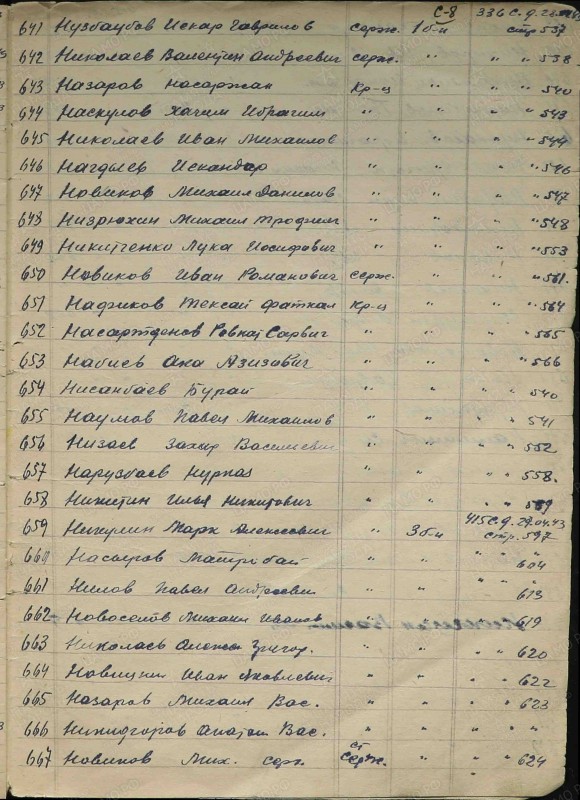 С-8 336 С.д. 28
641 Нузбаубов Искар Гаврилов серж. 1 б-н стр 537
642 Николаев Валентин Андреевич серж. " " " 538
643 Назаров Насаржан Кр-ц " " " 540
644 Наскулов Хачим Ибрагим " " " " 543
645 Николаев Иван Михаилов " " " " 544
646 Нагдыев Искандар " " " " 546
647 Новиков Михаил Данилов " " " " 547
648 Низрюхин Михаил " " " " 548
649 Никитченко Лука Иосифович " " " " 553
650 Новиков Иван Романович серж. " " " 561.
651 Надриков Тексай Фаткал Кр-ц " " " 564
652 Насартденов Ровкат Сарвич " " " " 565
653 Набиев Ака Азизович " " " " 566
654 Нисанбаев Бурай " " " " 540
655 Наумов Павел Михаилов " " " " 541
656 Низаев Захыр Василиевич " " " " 552
657 Нарузбаев Нурпаз " " " " 558.
658 Никитин Илья Никитович " " " "
415 С.д. 29.04.43
659 Никулин Марк Алексеевич " 3 б-н стр. 597
660 Насыров Матробай " " " " 604
661 Нилов Павел Андреевич " " " " 613
662 Новоселов Михаил Иванов " " 619
663 Николаев Алексы Григор. " " " " 620
664 Новицкий Иван Яковлевич " " " " 622
665 Назаров Михаил Вас. " " " " 623
666 Никифоров Анатол Вас. " " " "
667 Новиков Мих. серг. ст серж. " " " 624